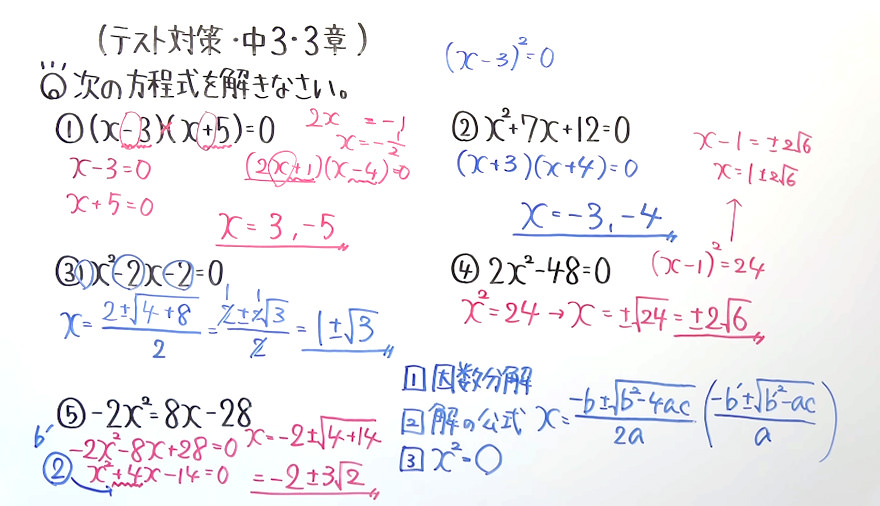 (テスト対策・中3・3章)
次の方程式を解きなさい。
(x-3)²=0
①(x-3)(x+5)=0
x-3=0
x+5=0
2x=-1
x=-1/2
(2x+1)(x-4)=0
x=3,-5
②x²+7x+12=0
(x+3)(x+4)=0
x=-3,-4
x-1=±2√6
x=1±2√6
(x-1)²=24
③x²-2x-2=0
x=(2±√(4+8))/2=(2±2√3)/2=1±√3
④2x²-48=0
x²=24→x=±√24=±2√6
⑤-2x²=8x-28
-2x²-8x+28=0
x²+4x-14=0
x=-2±√(4+14)
=-2±3√2
b′
②
1 因数分解
2 解の公式 x=(-b±√(b²-4ac))/2a ((-b′±√(b′²-ac))/a)
3 x²=○